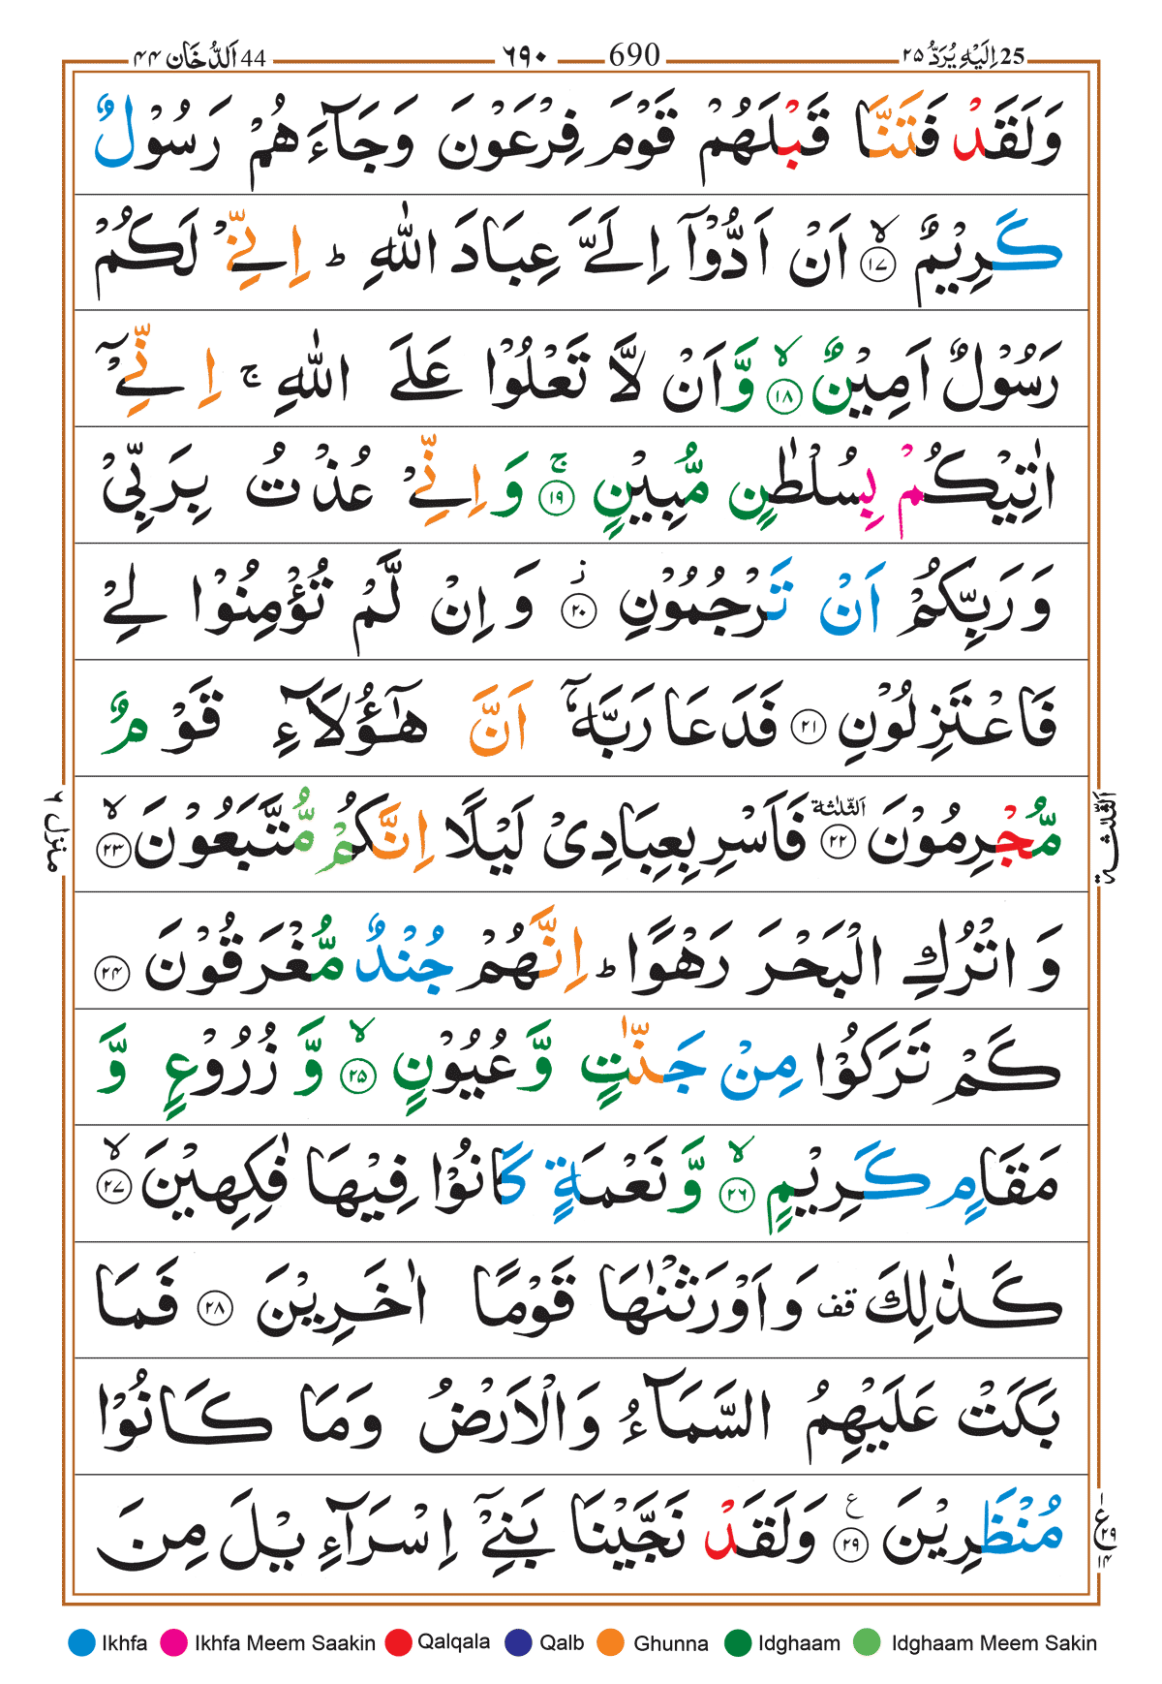 44 اَلدُّخَان ۴۴ ۶۹۰ 690 25 اِلَيْهِ يُرَدُّ ۲۵
وَلَقَدْ فَتَنَّا قَبْلَهُمْ قَوْمَ فِرْعَوْنَ وَجَآءَهُمْ رَسُوْلٌ
كَرِيْمٌ ۙ‏﴿۱۷﴾ اَنْ اَدُّوْۤا اِلَىَّ عِبَادَ اللّٰهِ ؕ اِنِّىْ لَكُمْ
رَسُوْلٌ اَمِيْنٌ ۙ‏﴿۱۸﴾ وَّاَنْ لَّا تَعْلُوْا عَلَى اللّٰهِ ۚ اِنِّىْۤ
اٰتِيْكُمْ بِسُلْطٰنٍ مُّبِيْنٍ ۚ‏﴿۱۹﴾ وَ اِنِّىْ عُذْتُ بِرَبِّىْ
وَ رَبِّكُمْ اَنْ تَرْجُمُوْنِ ز‏﴿۲۰﴾ وَ اِنْ لَّمْ تُؤْمِنُوْا لِىْ
فَاعْتَزِلُوْنِ ‏﴿۲۱﴾ فَدَعَا رَبَّهٗۤ اَنَّ هٰٓؤُلَآءِ قَوْمٌ
مُّجْرِمُوْنَ ‏﴿۲۲﴾ اَلثَّلٰثَة فَاَسْرِ بِعِبَادِىْ لَيْلًا اِنَّكُمْ مُّتَّبَعُوْنَ ۙ‏﴿۲۳﴾
وَ اتْرُكِ الْبَحْرَ رَهْوًا ؕ اِنَّهُمْ جُنْدٌ مُّغْرَقُوْنَ ‏﴿۲۴﴾
كَمْ تَرَكُوْا مِنْ جَنّٰتٍ وَّعُيُوْنٍ ۙ‏﴿۲۵﴾ وَّ زُرُوْعٍ وَّ
مَقَامٍ كَرِيْمٍ ۙ‏﴿۲۶﴾ وَّنَعْمَةٍ كَانُوْا فِيْهَا فٰكِهِيْنَ ۙ‏﴿۲۷﴾
كَذٰلِكَ قف وَاَوْرَثْنٰهَا قَوْمًا اٰخَرِيْنَ ‏﴿۲۸﴾ فَمَا
بَكَتْ عَلَيْهِمُ السَّمَآءُ وَالْاَرْضُ وَمَا كَانُوْا
مُنْظَرِيْنَ ع‏﴿۲۹﴾ وَلَقَدْ نَجَّيْنَا بَنِىْۤ اِسْرَآءِيْلَ مِنَ
اَلثَّلٰثَة
منزل ۶
ع ۲۹ ۱۴
Ikhfa Ikhfa Meem Saakin Qalqala Qalb Ghunna Idghaam Idghaam Meem Sakin